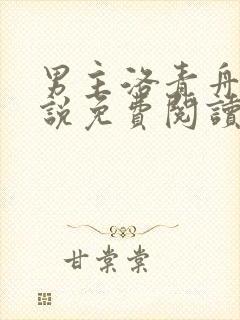 男主洛青舟
說免費閱讀
甘棠棠